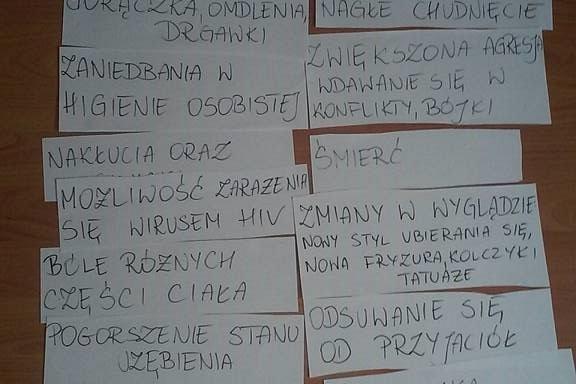 GORĄCZKA, OMDLENIA,
DRGAWKI
ZANIEDBANIA W
HIGIENIE OSOBISTEJ
NAKŁUCIA ORAZ
MOŻLIWOŚĆ ZARAŻENIA
SIĘ WIRUSEM HIV
BÓLE RÓŻNYCH
CZĘŚCI CIAŁA
POGORSZENIE STANU
UZĘBIENIA
NAGŁE CHUDNIĘCIE
ZWIĘKSZONA AGRESJA
WDAWANIE SIĘ W
KONFLIKTY, BÓJKI
ŚMIERĆ
ZMIANY W WYGLĄDZIE
NOWY STYL UBIERANIA SIĘ,
NOWA FRYZURA, KOLCZYKI
TATUAŻE
ODSUWANIE SIĘ
OD PRZYJACIÓŁ